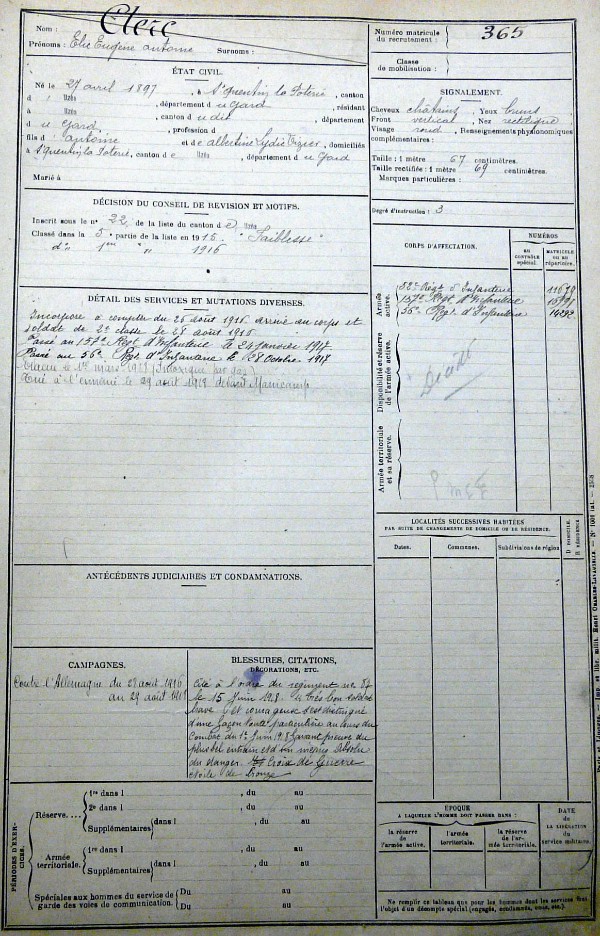 Nom : Clerc
Prénoms : Elie Eugène Antoine Surnoms :
Numéro matricule du recrutement : 365
Classe de mobilisation :
ÉTAT CIVIL.
Né le 27 avril 1897, à St Quentin la Poterie, canton
d Uzès, département du Gard, résidant
à Uzès, département
du Gard, profession d
fils d Antoine et de Albertine Lydie, domiciliés
à St Quentin la Poterie, canton d Uzès, département du Gard
Marié à
SIGNALEMENT.
Cheveux châtains Yeux
Front vertical Nez rectiligne
Visage rond Renseignements physionomiques
complémentaires :
Taille : 1 mètre 67 centimètres.
Taille rectifiée : 1 mètre 69 centimètres.
Marques particulières :
Degré d'instruction : 3
DÉCISION DU CONSEIL DE REVISION ET MOTIFS.
Inscrit sous le n° 22 de la liste du canton d Uzès
Classé dans la 5e partie de la liste en 1915 "Faiblesse"
d° 1re " 1916
DÉTAIL DES SERVICES ET MUTATIONS DIVERSES.
Incorporé à compter du 26 août 1916 arrivé au corps et
soldat de 2e classe le 28 août 1916
Passé au 157e Regt d'Infanterie le 24 janvier 1917
Passé au 56e Regt d'Infanterie le 28 Octobre 1917
Evacué le mars 1918 (Intoxiqué par gaz)
Tué à l'ennemi le 29 août 1918 devant Manicamp
CORPS D'AFFECTATION.
NUMÉROS
AU CONTRÔLE spécial.
MATRICULE OU AU répertoire.
Armée active.
52e Regt d'Infanterie
157e Regt d'Infanterie
56e Regt d'Infanterie
Disponibilité et réserve de l'armée active.
Armée territoriale et sa réserve.
LOCALITÉS SUCCESSIVES HABITÉES
PAR SUITE DE CHANGEMENTS DE DOMICILE OU DE RÉSIDENCE.
Dates.
Communes.
Subdivisions de région
D DOMICILE.
R RÉSIDENCE
ANTÉCÉDENTS JUDICIAIRES ET CONDAMNATIONS.
CAMPAGNES.
Contre l'Allemagne du 27 août 1916
au 29 août 1918
BLESSURES, CITATIONS,
DÉCORATIONS, ETC.
Cité à l'ordre du régiment n° 87
le 15 Juin 1918 "Très bon soldat
brave et courageux s'est distingué
d'une façon toute particulière au cours du
combat du 1er Juin 1918 faisant preuve du
plus bel entrain et d'un mépris absolu
du danger. Croix de Guerre
étoile de bronze
PÉRIODES D'EXERCICES.
Réserve....
1re dans l , du au
2e dans l , du au
Supplémentaires dans l , du au
Armée territoriale.
1re dans l , du au
Supplémentaires dans l , du au
Spéciales aux hommes du service de garde des voies de communication.
Du au
Du au
ÉPOQUE
A LAQUELLE L'HOMME DOIT PASSER DANS :
la réserve de l'armée active.
l'armée territoriale.
la réserve de l'armée territoriale.
DATE DE LA LIBÉRATION du service militaire.
Ne remplir ce tableau que pour les hommes dont les services font
l'objet d'un décompte spécial (engagés, condamnés, omis, etc.).